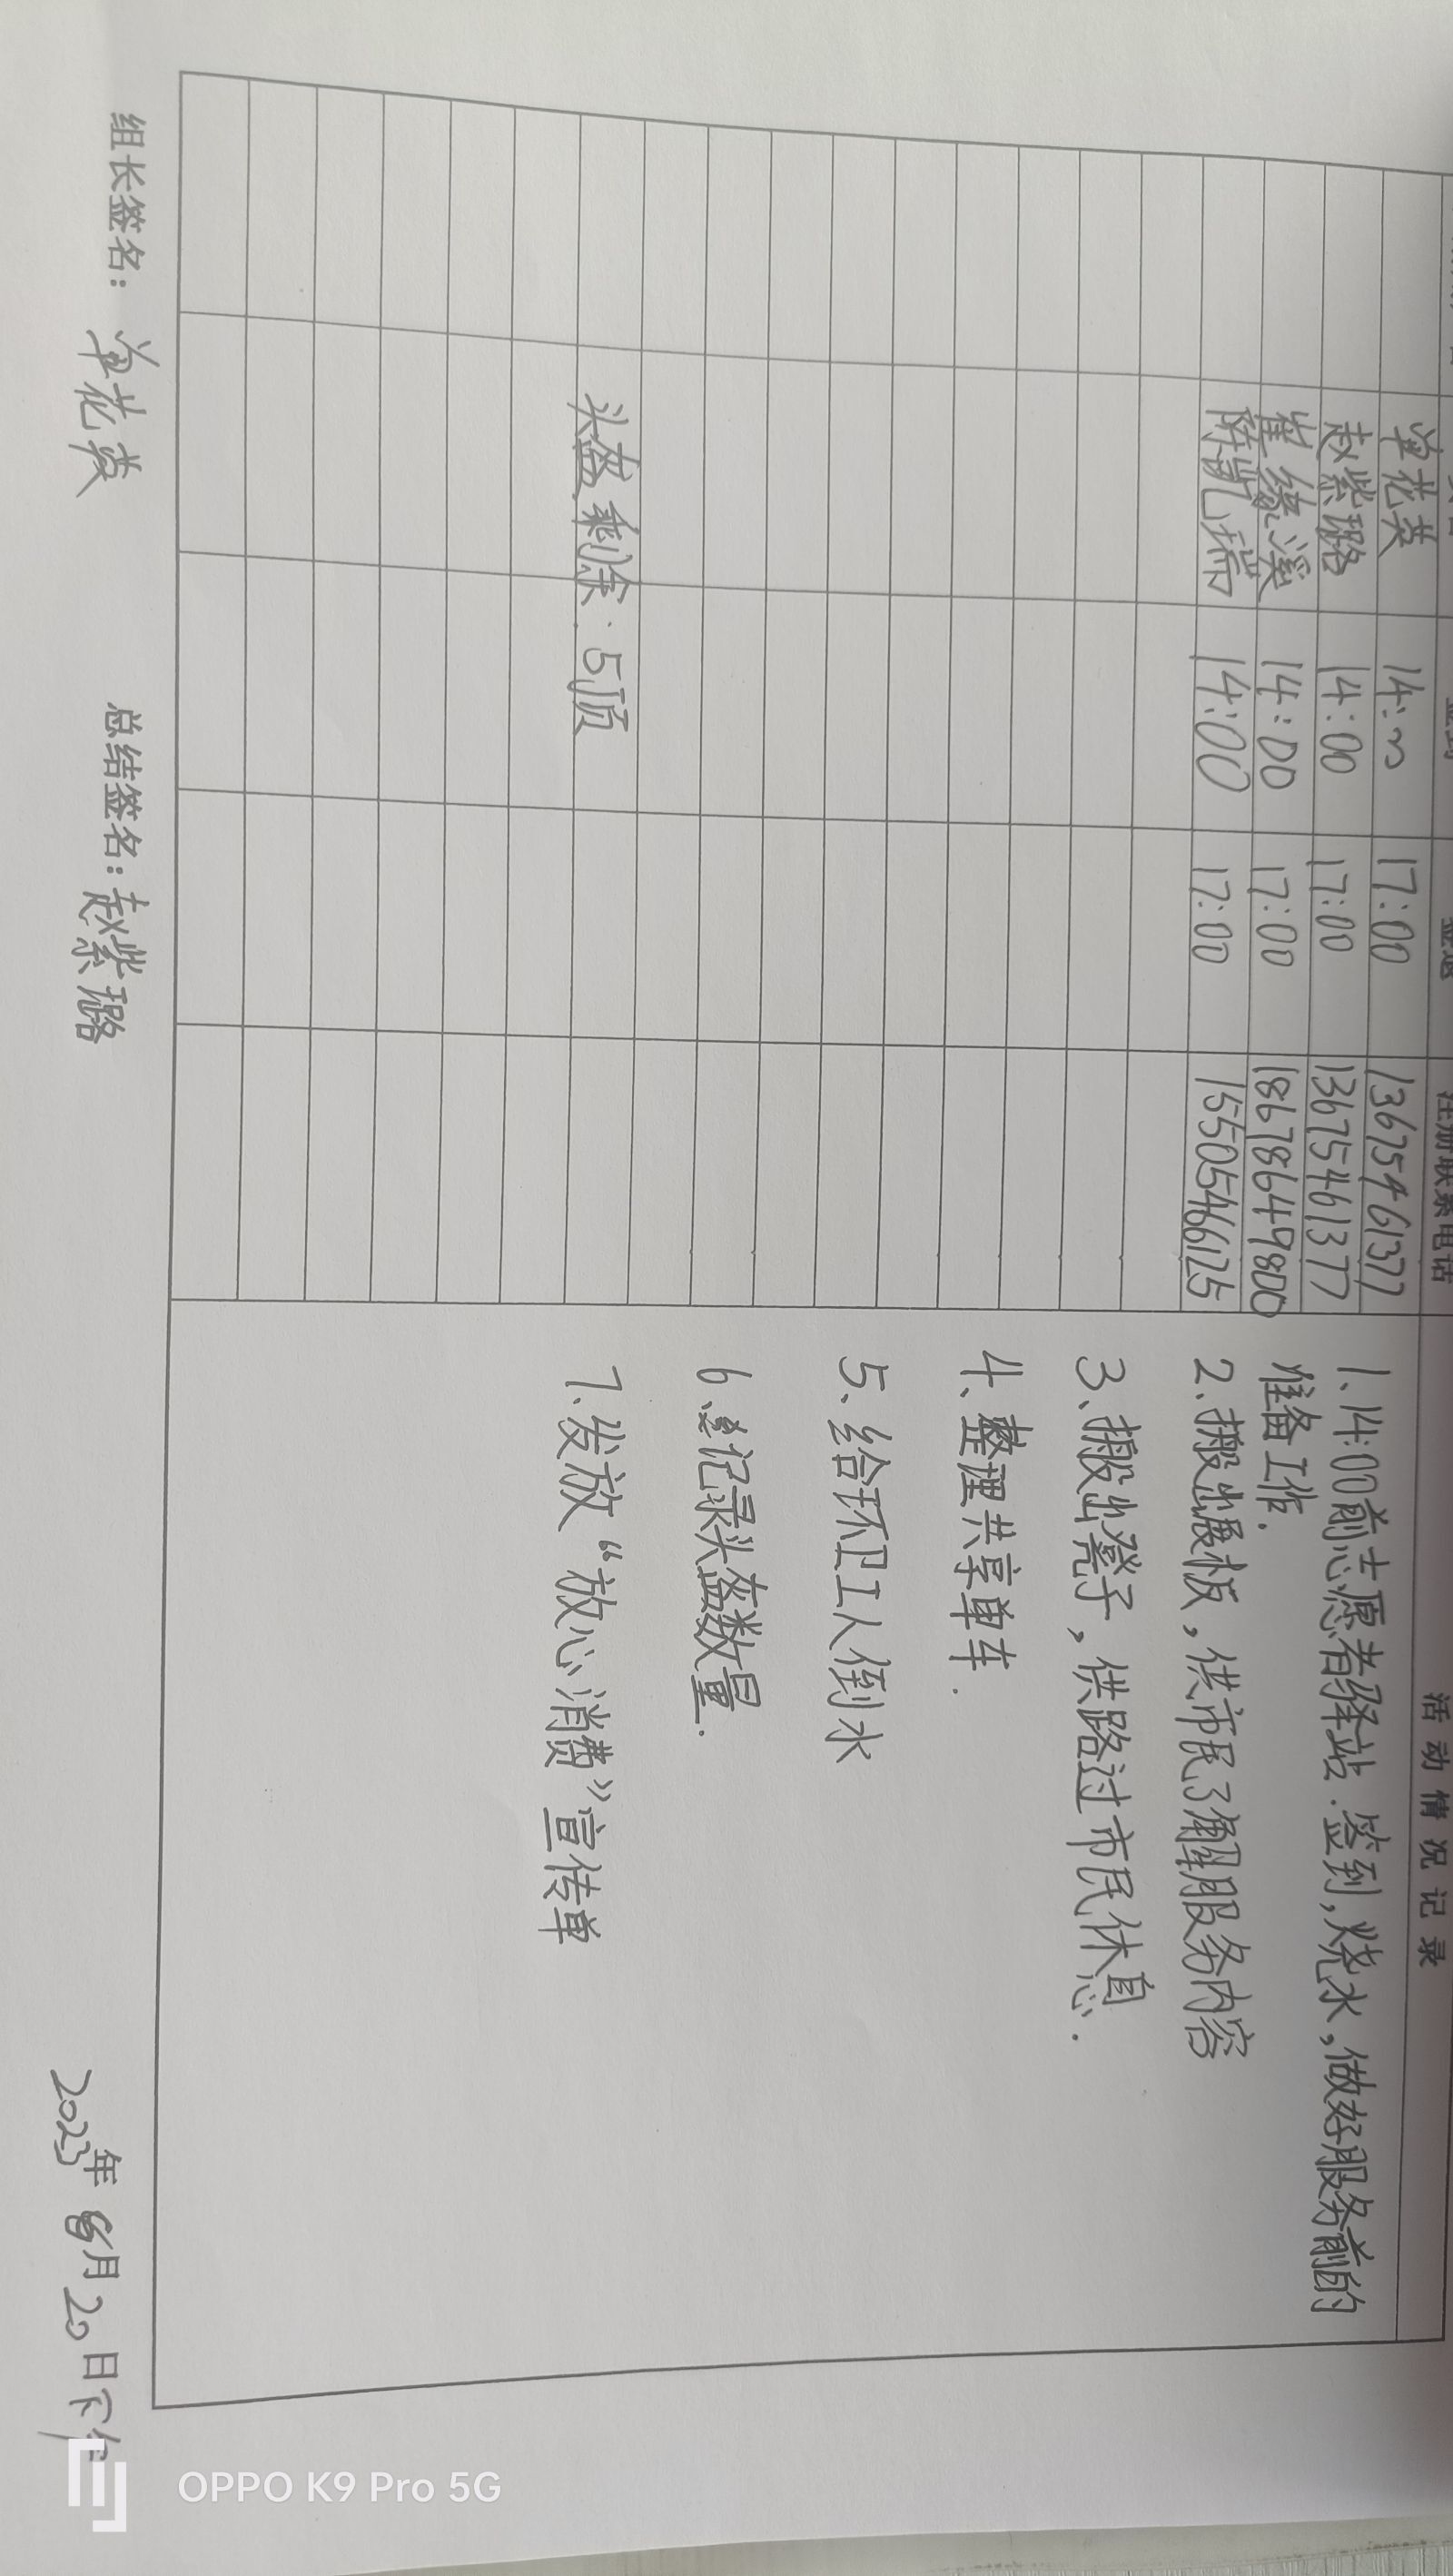 注册联系电话 活动情况记录
单花英 14:00 17:00 13675461377
赵紫璐 14:00 17:00 13675461377
崔缘溪 14:00 17:00 18678649800
陈凯瑞 14:00 17:00 15505466125
头盔剩余:5顶
1、14:00前志愿者驿站.签到,烧水,做好服务前的
准备工作.
2、搬出展板,供市民了解服务内容
3、搬出凳子,供路过市民休息.
4、整理共享单车.
5、给环卫工人倒水
6、记录头盔数量.
7、发放“放心消费”宣传单
组长签名:单花英 总结签名:赵紫璐 2023年8月20日下午
OPPO K9 Pro 5G